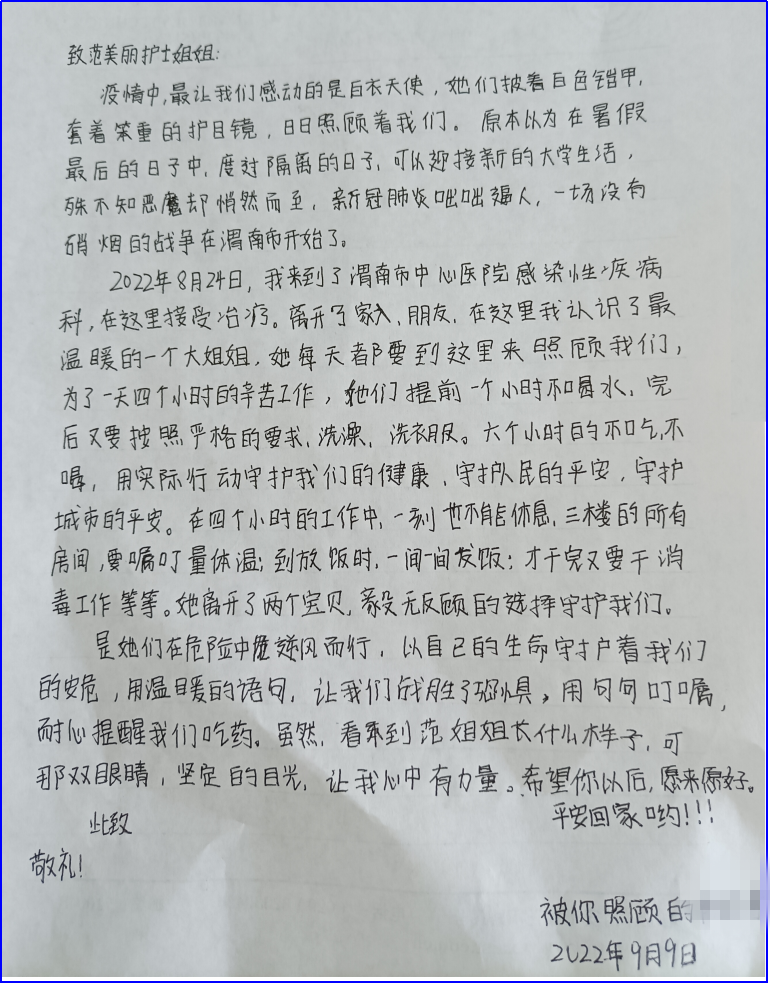 致范美丽护士姐姐:
疫情中,最让我们感动的是白衣天使,她们披着白色铠甲,
套着笨重的护目镜,日日照顾着我们。原本以为在暑假
最后的日子中,度过隔离的日子,可以迎接新的大学生活,
殊不知恶魔却悄然而至,新冠肺炎咄咄逼人,一场没有
硝烟的战争在渭南市开始了。
2022年8月24日,我来到了渭南市中心医院感染性疾病
科,在这里接受治疗。离开了家人、朋友,在这里我认识了最
温暖的一个大姐姐,她每天都要到这里来照顾我们,
为了一天四个小时的辛苦工作,她们提前一个小时不喝水,完
后又要按照严格的要求,洗澡、洗衣服。六个小时的不吃,不
喝,用实际行动守护我们的健康,守护人民的平安,守护
城市的平安。在四个小时的工作中,一刻也不能休息,三楼的所有
房间,要嘱叮量体温;到放饭时,一间一间发饭;才干完又要干消
毒工作等等。她离开了两个宝贝,义无反顾的选择守护我们。
是她们在危险中逆风而行,以自己的生命守护着我们
的安危,用温暖的语句,让我们战胜了恐惧,用句句叮嘱,
耐心提醒我们吃药。虽然,看不到范姐姐长什么样子,可
那双眼睛,坚定的目光,让我心中有力量。希望你以后,愿来愿好。
平安回家哟!!!
此致
敬礼!
被你照顾的
2022年9月9日